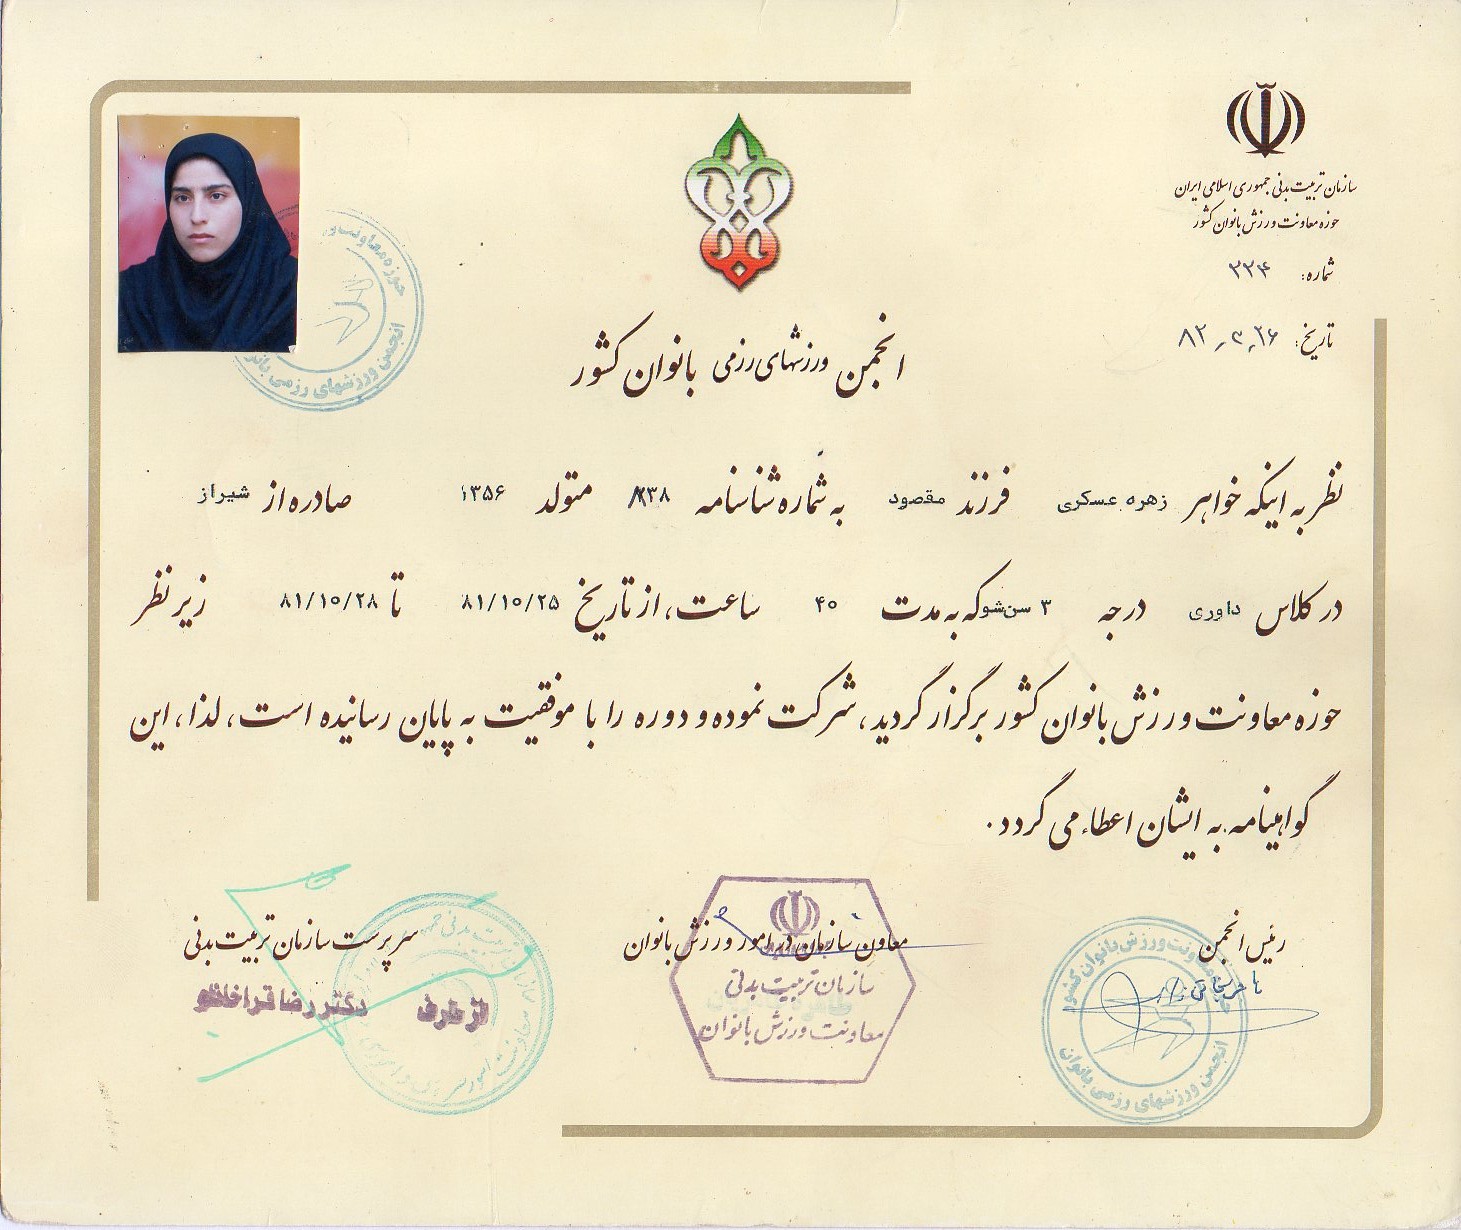 سازمان تربیت بدنی جمهوری اسلامی ایران
حوزه معاونت ورزش بانوان کشور
شماره: ۲۲۴
تاریخ: ۸۲,۳,۲۶
انجمن ورزشهای رزمی بانوان کشور
نظر به اینکه خواهر زهره عسکری فرزند مقصود به شماره شناسنامه متولد ۱۳۵۶ صادره از شیراز
در کلاس داوری درجه ۳ سن‌شو که به مدت ۴۰ ساعت، از تاریخ ۸۱/۱۰/۲۵ تا ۸۱/۱۰/۲۸ زیر نظر
حوزه معاونت ورزش بانوان کشور برگزار گردید، شرکت نموده و دوره را با موفقیت به پایان رسانیده است، لذا، این
گواهینامه به ایشان اعطاء می گردد.
رئیس انجمن
معاون سازمان در امور ورزش بانوان
سرپرست سازمان تربیت بدنی
از طرف دکتر رضا قراخانلو
سازمان تربیت بدنی
معاونت ورزش بانوان
حوزه معاونت ورزش بانوان کشور
انجمن ورزشهای رزمی بانوان
حوزه معاونت ور
انجمن ورزشهای رزمی بانوا